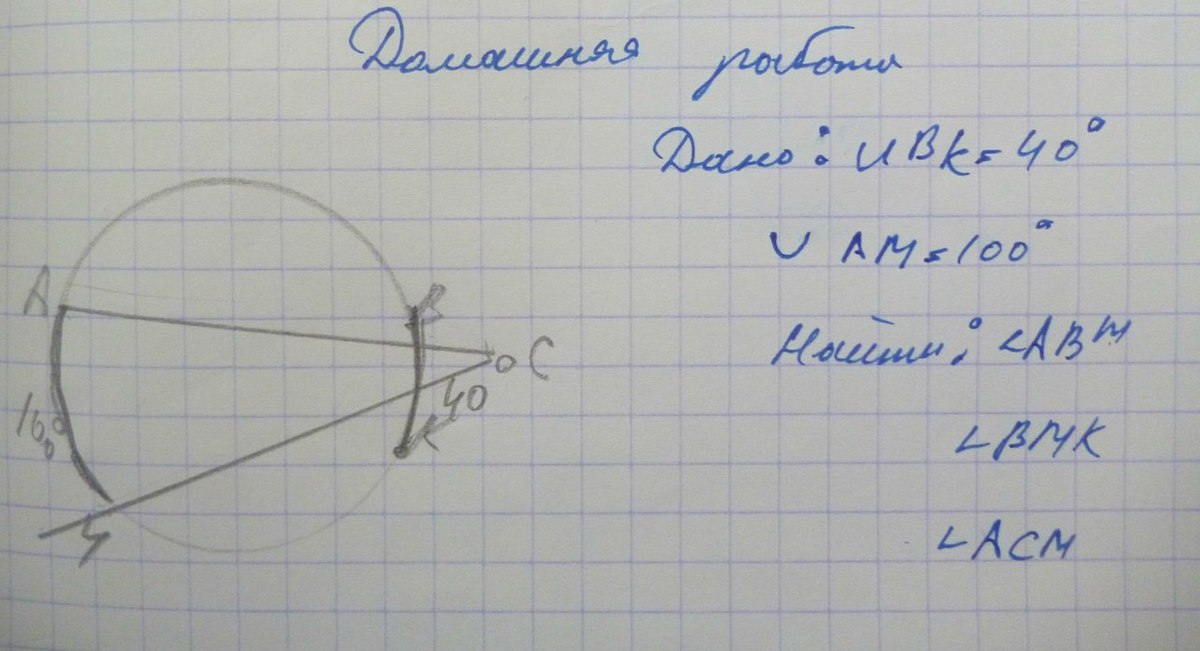 Домашняя работа
Дано: ∪BK=40°
∪ AM=100°
Найти: ∠ABM
∠BMK
∠ACM
A
B
C
40
K
100